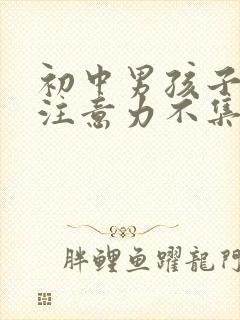 初中男孩子
注意力不集
胖鲤鱼躍龍門